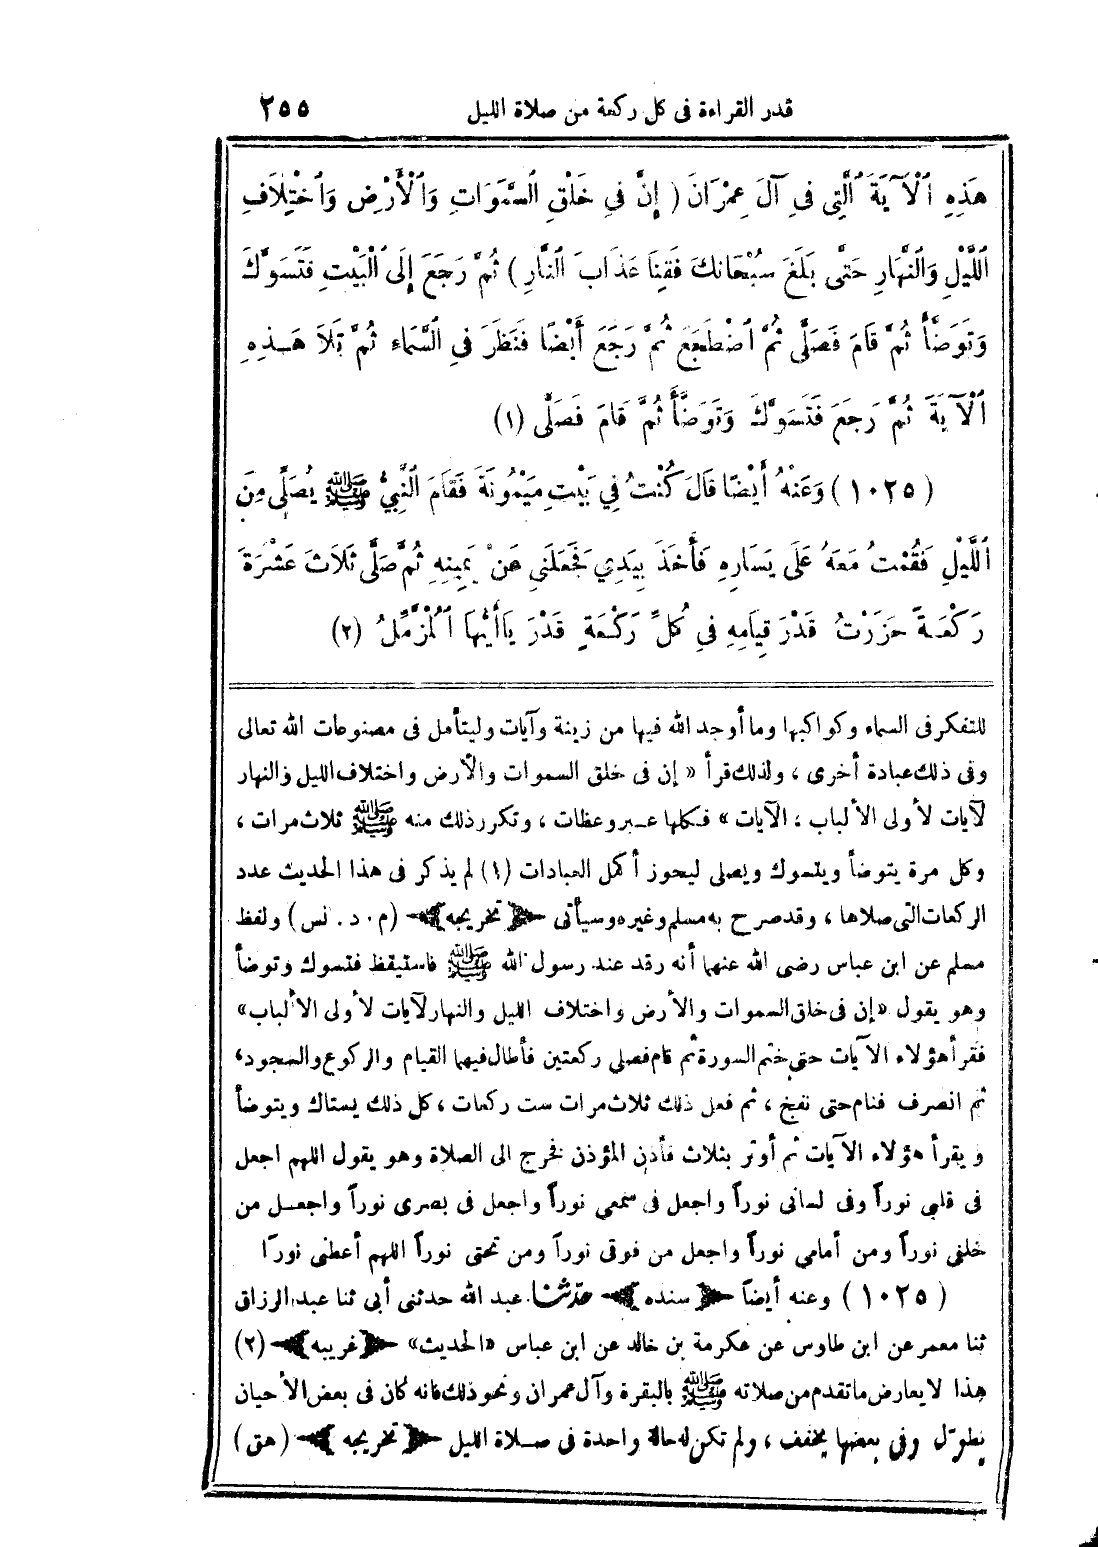 قدر القراءة فى كل ركعة من صلاة الليل ٢٥٥
هَذِهِ ٱلْآيَةَ ٱلَّتِى فِي آلَ عِمْرَانَ ( إِنَّ فِي خَلْقِ السَّمَوَاتِ وَٱلْأَرْضِ وَٱخْتِلَافِ
ٱللَّيْلِ وَالنَّهَارِ حَتَّى بَلَغَ سُبْحَانَكَ فَقِنَا عَذَابَ ٱلنَّارِ ) ثُمَّ رَجَعَ إِلَى ٱلْبَيْتِ فَتَسَوَّكَ
وَتَوَضَّأَ ثُمَّ قَامَ فَصَلَّى ثُمَّ ٱضْطَجَعَ ثُمَّ رَجَعَ أَيْضًا فَنَظَرَ فِي السَّمَاءِ ثُمَّ تَلَا هَـذِهِ
ٱلْآيَةَ ثُمَّ رَجَعَ فَتَسَوَّكَ وَتَوَضَّأَ ثُمَّ قَامَ فَصَلَّى (١)
( ١٠٢٥ ) وَعَنْهُ أَيْضًا قَالَ كُنْتُ فِي بَيْتِ مَيْمُونَةَ فَقَامَ ٱلنَّبِيُّ ﷺ يُصَلِّى مِنَ
ٱللَّيْلِ فَقُمْتُ مَعَهُ عَلَى يَسَارِهِ فَأَخَذَ بِيَدِي فَجَعَلَنِي عَنْ يَمِينِهِ ثُمَّ صَلَّى ثَلَاثَ عَشْرَةَ
رَكْعَـةً حَزَرْتُ قَدْرَ قِيَامِهِ فِي كُلِّ رَكْعَةٍ قَدْرَ يَاأَيُّهَا ٱلْمُزَّمِّلُ (٢)
للتفكر فى السماء وكواكبها وما أوجد الله فيها من زينة وآيات وليتأمل فى مصنوعات الله تعالى
وفى ذلك عبادة أخرى ، ولذلك قرأ « إن فى خلق السموات والأرض واختلاف الليل والنهار
لآيات لأولى الألباب ، الآيات » فكلها عـبر وعظات ، وتكرر ذلك منه ﷺ ثلاث مرات ،
وكل مرة يتوضأ ويتسوك ويصلى ليحوز أكمل العبادات (١) لم يذكر فى هذا الحديث عدد
الركعات التى صلاها ، وقد صرح به مسلم وغيره وسيأتى ﴿ تخريجه ﴾ (م . د . نس) ولفظ
مسلم عن ابن عباس رضى الله عنهما أنه رقد عند رسول الله ﷺ فاستيقظ فتسوك وتوضأ
وهو يقول «إن فى خلق السموات والأرض واختلاف الليل والنهار لآيات لأولى الألباب»
فقرأ هؤلاء الآيات حتى ختم السورة ثم قام فصلى ركعتين فأطال فيهما القيام والركوع والسجود،
ثم انصرف فنام حتى نفخ ، ثم فعل ذلك ثلاث مرات ست ركعات ، كل ذلك يستاك ويتوضأ
ويقرأ هؤلاء الآيات ثم أوتر بثلاث فأذن المؤذن فخرج الى الصلاة وهو يقول اللهم اجعل
فى قلبى نوراً وفى لسانى نوراً واجعل فى سمعى نوراً واجعل فى بصرى نوراً واجعـل من
خلفى نوراً ومن أمامى نوراً واجعل من فوقى نوراً ومن تحتى نوراً اللهم أعطنى نورًا
( ١٠٢٥ ) وعنه أيضاً ﴿ سنده ﴾ حدّثنا عبد الله حدثنى أبى ثنا عبد الرزاق
ثنا معمر عن ابن طاوس عن عكرمة بن خالد عن ابن عباس «الحديث» ﴿ غريبه ﴾ (٢)
هذا لا يعارض ما تقدم من صلاته ﷺ بالبقرة وآل عمران ونحو ذلك فانه كان فى بعض الأحيان
يطوّل وفى بعضها يخفف ، ولم تكن له حالة واحدة فى صـلاة الليل ﴿ تخريجه ﴾ ( هق )